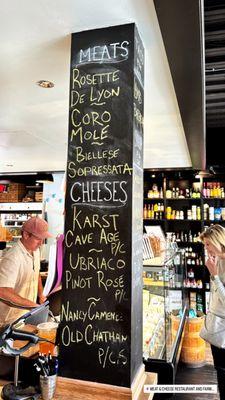 MEATS
ROSETTE
DE LYON
~
CORO
MOLE
~
BIELLESE
SOPRESSATA
CHEESES
KARST
CAVE AGE
P/C
UBRIACO
PINOT ROSÉ
P/C
~
OLD CHATHAM
P/C.S
MEAT & CHEESE RESTAURANT AND